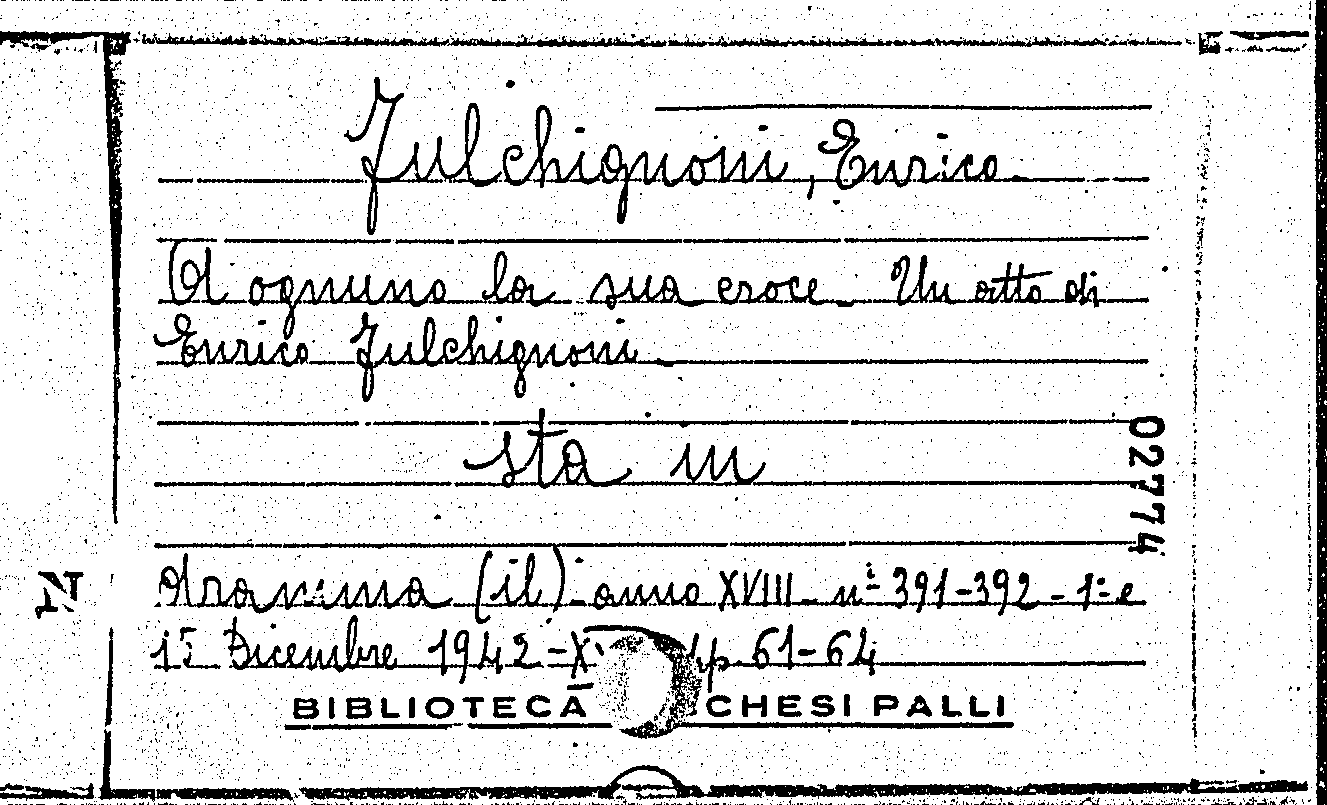 Fulchignoni, Enrico.
A ognuno la sua croce. Un atto di
Enrico Fulchignoni.
sta in
02774
dramma (il) - anno XVIII - nⁱ 391-392 - 1° e
N
15 Dicembre 1942 - pp. 61-64
BIBLIOTECA CHESI PALLI